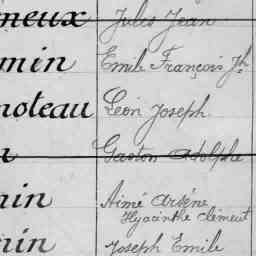 meux Jules Jean
min Emile François Jh
noteau Léon Joseph
Gaston Adolphe
nin Aimé Arsène
Hyacinthe Clément
nin Joseph Emile